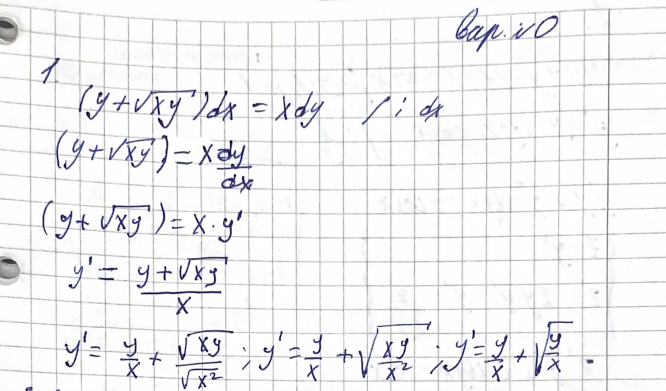 Вар. N0
1
(y + √xy) dx = x dy / : dx
(y + √xy) = x dy/dx
(y + √xy) = x · y'
y' = (y + √xy)/x
y' = y/x + √xy/√x² ; y' = y/x + √(xy/x²) ; y' = y/x + √(y/x) .